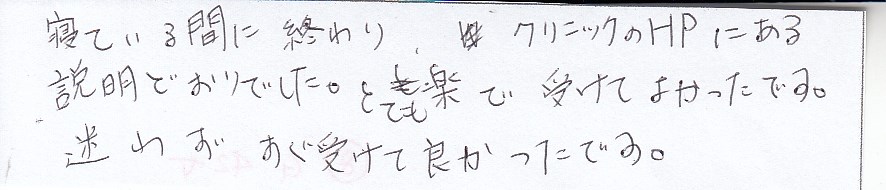 寝ている間に終わり、クリニックのHPにある
説明どおりでした。とても楽で受けてよかったです。
迷わずすぐ受けて良かったです。